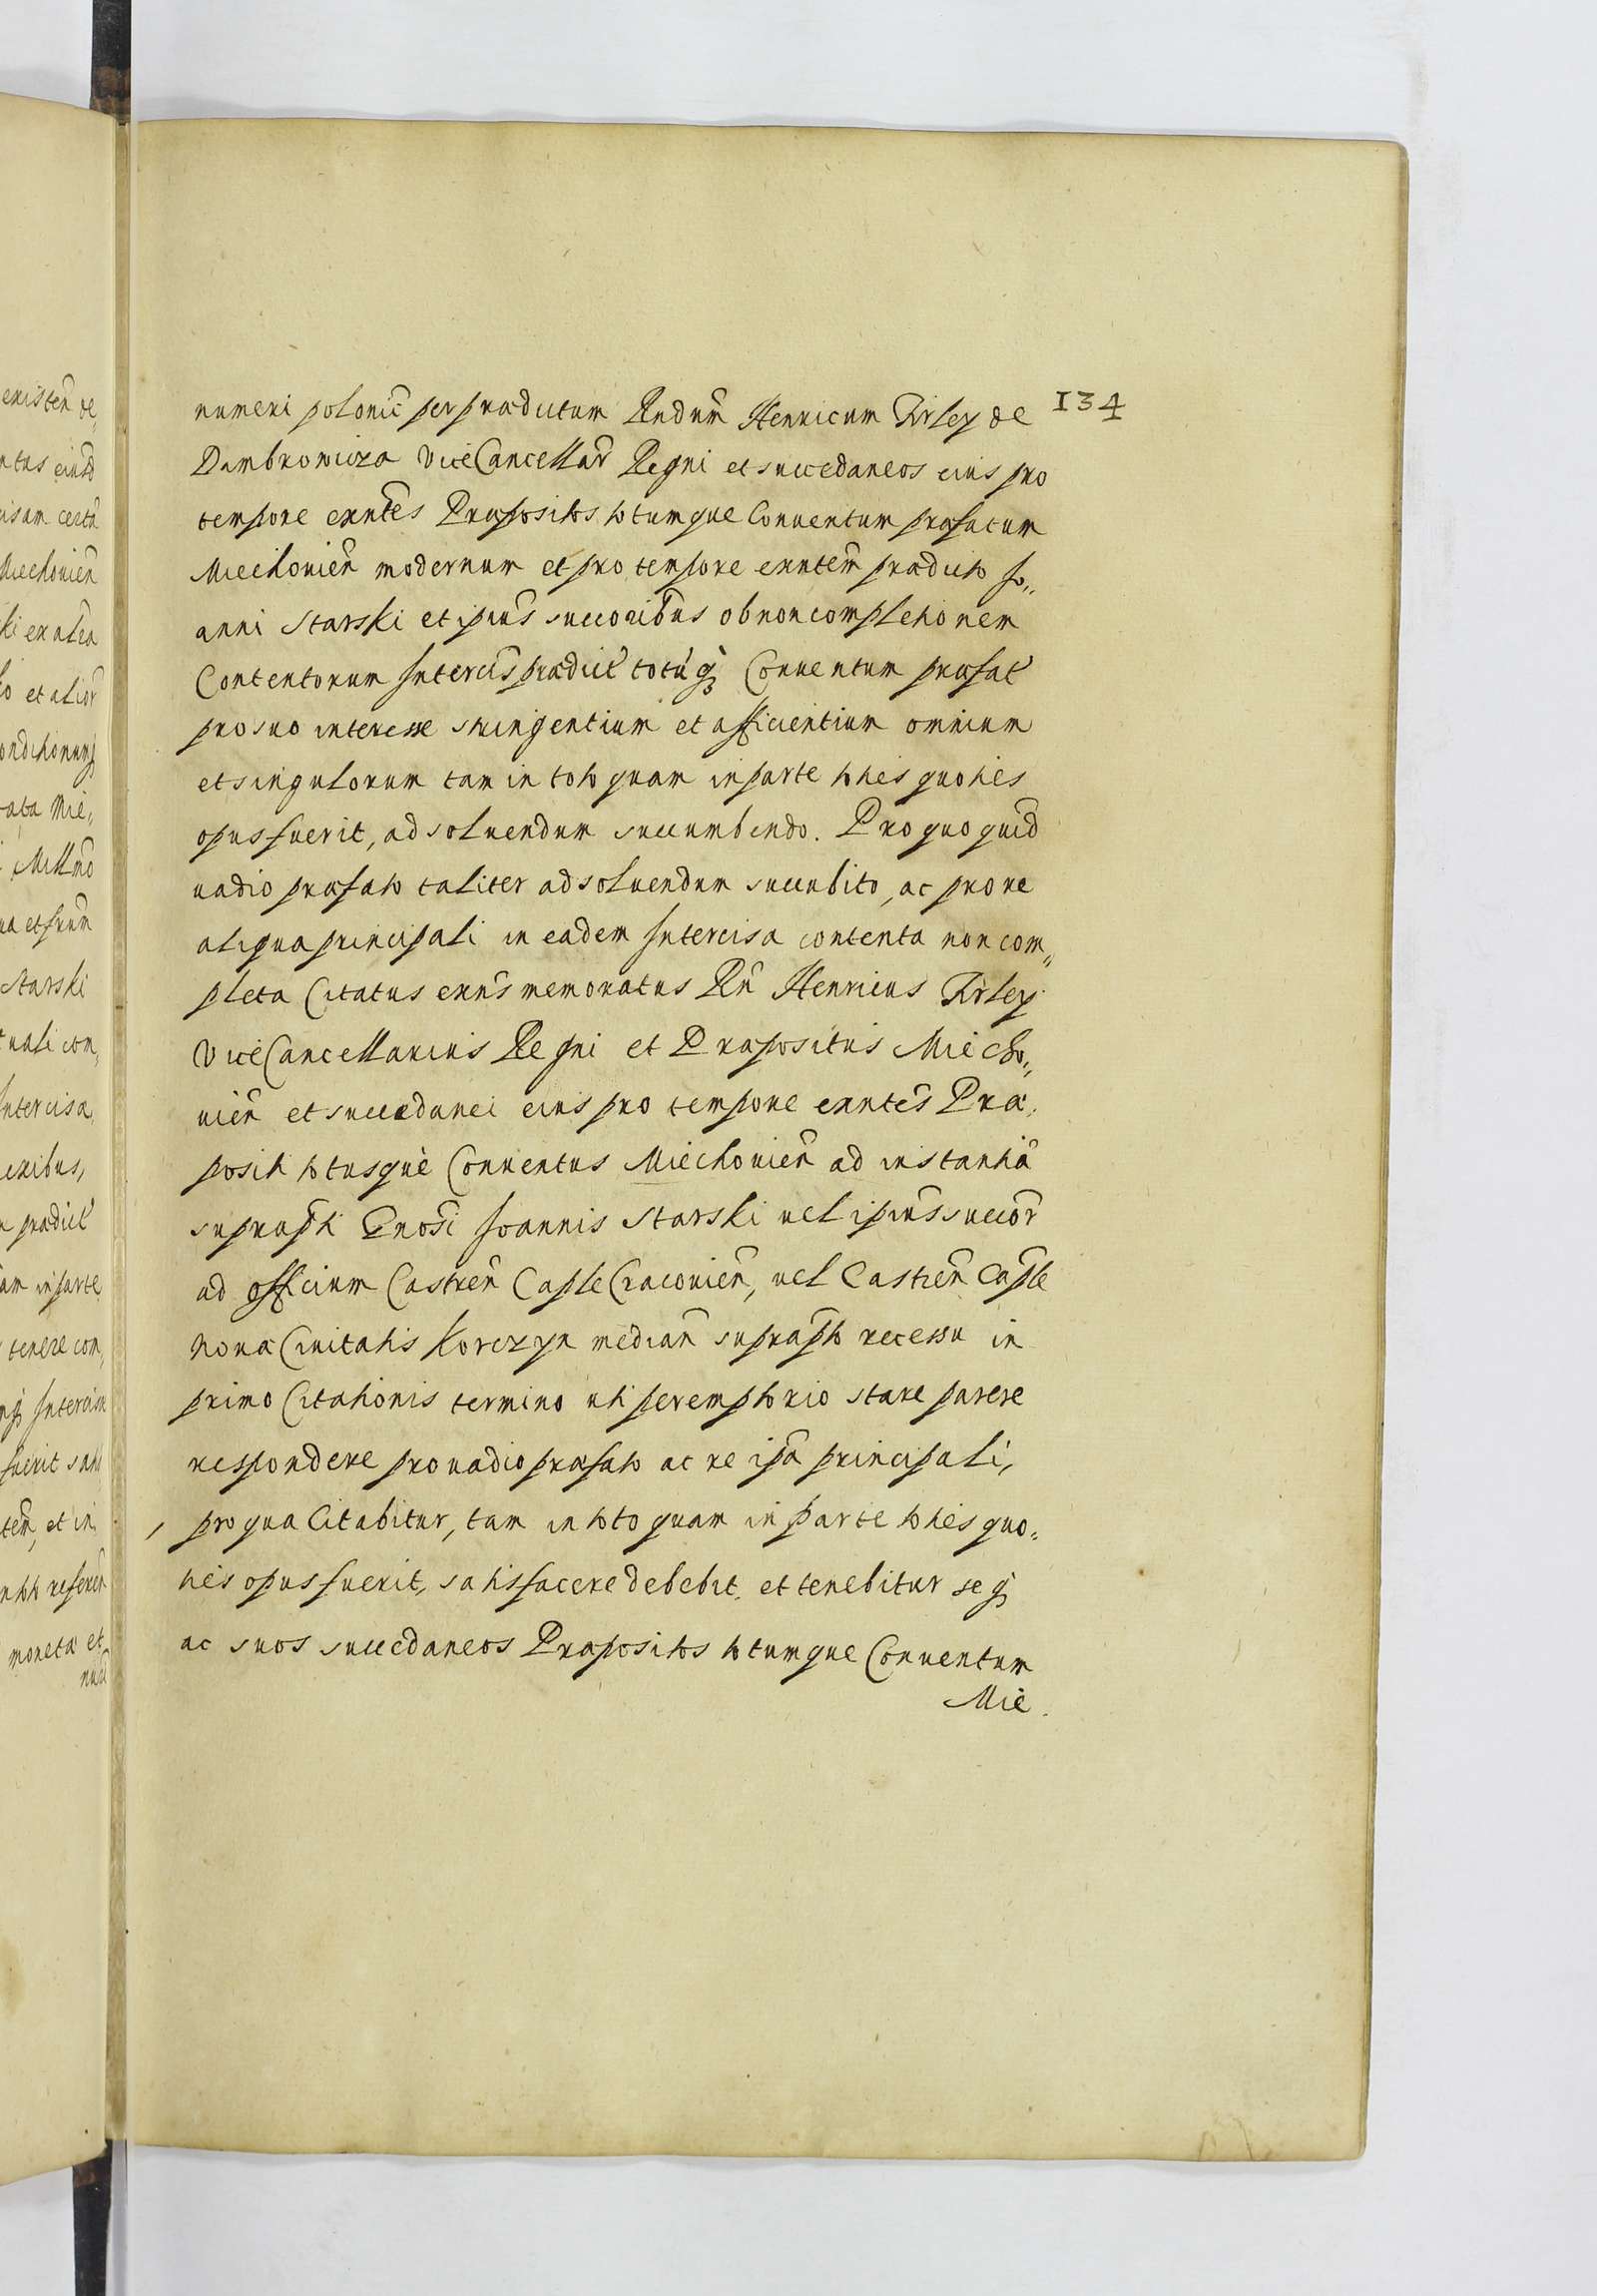 134
numeri poloniẽ per prædictum Rndum̃ Henricum Firley de
Dambrowicza ViceCancellar̃ Regni et succedaneos eius pro
tempore exñtes Præpositos totumque Conuentum præfatum
Miechouieñ modernum et pro tempore exñtem prædicto Jo„
anni Starski et ipius̃ succoribus̃ ob non completionem
Contentorum Intercis̃ prædict̃ totũq3 Conuentum præfat̃
pro suo interesse stringentium et afficientium omnium
et singulorum tam in toto quam in parte toties quoties
opus fuerit, ad soluendum succumbendo. Pro quo quid̃
uadio præfato taliter ad soluendum succubito, ac pro re
aliqua principali in eadem Intercisa contenta non com„
pleta Citatus exñs memoratus Rñ Henricus Firley
ViceCancellarius Regni et Præpositus Miecho„
uieñ et succedanei eius pro tempore exñtes Præ„
positi totusque Conuentus Miechouieñ ad instantiã
supraph̃ Gnosĩ Joannis Starski uel ipius̃ succor̃
ad officium Castreñ Caplẽ Cracouieñ, uel Castreñ Caplẽ
Nouæ Ciuitatis Korczyn median̄ suprapto recessu in
primo Citationis termino uti peremptorio stare parere
respondere pro uadio præfato ac re ipã principali,
pro qua Citabitur, tam in toto quam in parte toties quo„
ties opus fuerit, satisfacere debebit et tenebitur seq3
ac suos succedaneos Præpositos totumque Conuentum
Mie